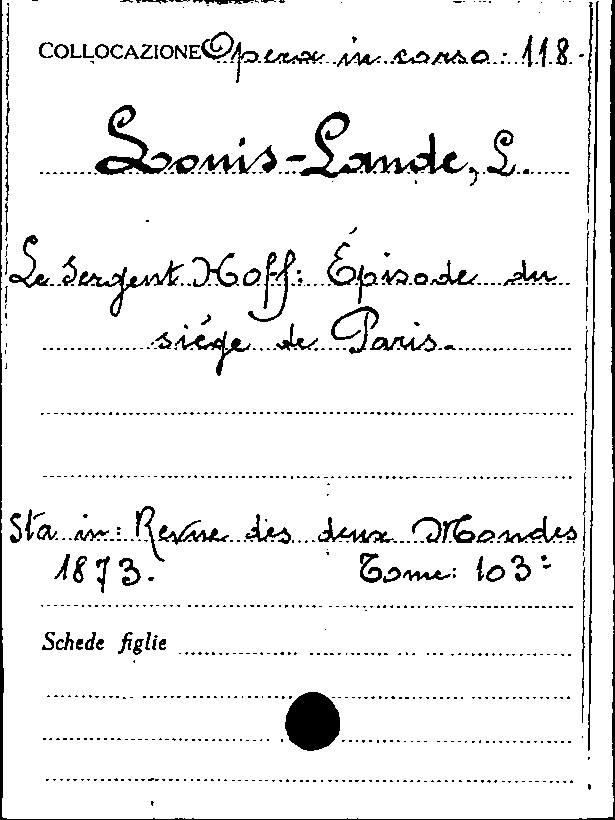 COLLOCAZIONE Opera in corso: 118.
Louis-Lande, L.
Le Sergent Hoff: Épisode du
siége de Paris.
Sta in: Revue des deux Mondes
1873. Tome: 103º
Schede figlie